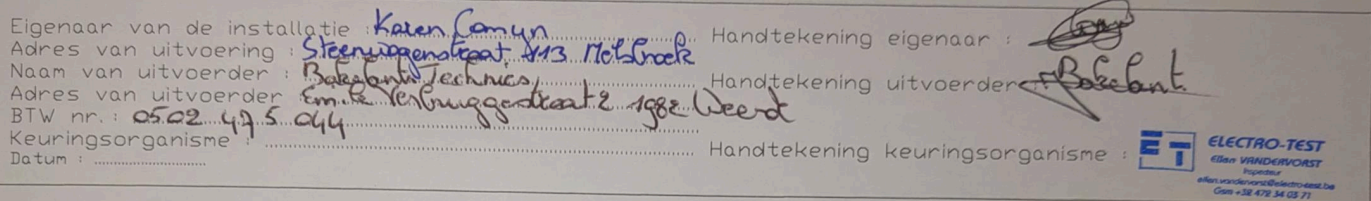 Eigenaar van de installatie : Karen Comyn Handtekening eigenaar :
Adres van uitvoering : Steenwagenstraat 113 Melsbroek
Naam van uitvoerder : Bakelants Technics Handtekening uitvoerder : Bakelant
Adres van uitvoerder Emile Verbruggenstraat 2 1982 Weerde
BTW nr. : 0502 475 044
Keuringsorganisme : Handtekening keuringsorganisme :
Datum :
ET ELECTRO-TEST
Ellen VANDERVORST
Inspecteur
ellen.vandervorst@electro-test.be
Gsm +32 472 34 03 71